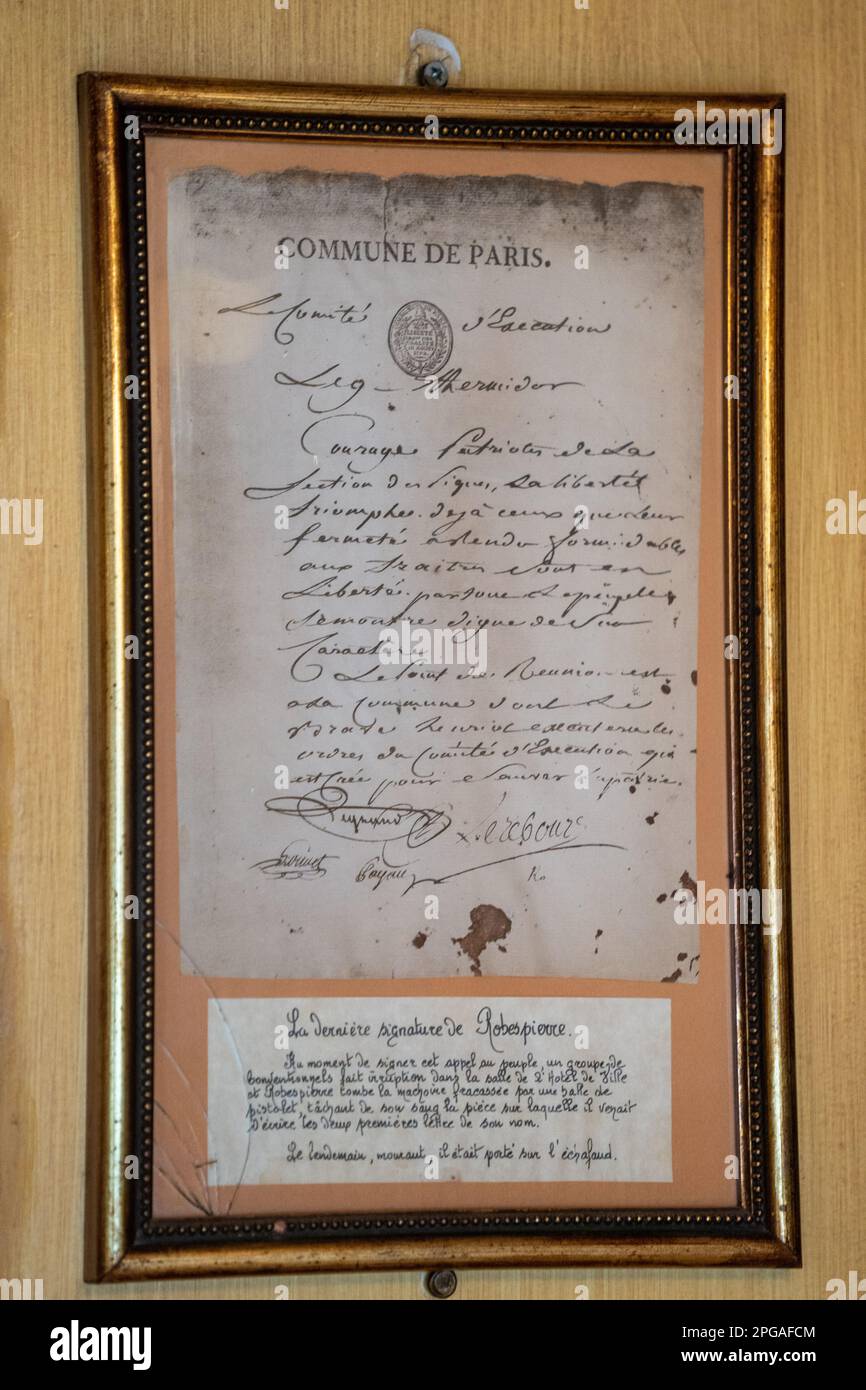 COMMUNE DE PARIS.
Le Comité d'Execution
LIBERTÉ
ÉGALITÉ
Le 9 thermidor
Courage Patriotes de La
Section des Piques, La liberté
Triomphe. deja ceux que Leur
fermeté a rendu formidables
aux Traitres sont en
Liberté. partout Le peuple
se montre digne de Son
Caractere
Le Point de Reunion est
a La Commune dont Le
brave henriot executera les
ordres du Comité d'Execution qui
est Crée pour Sauver La patrie.
Legrand Lerebours
Louvet Payan Ro
La dernière signature de Robespierre.
Au moment de signer cet appel au peuple, un groupe de
Conventionnels fait irruption dans la salle de l'Hôtel de Ville
et Robespierre tombe la machoire fracassée par une balle de
pistolet, tâchant de son sang la pièce sur laquelle il venait
d'écrire les deux premières lettre de son nom.
Le lendemain, mourant, il était porté sur l'échafaud.
alamy
Image ID: 2PGAFCM
www.alamy.com